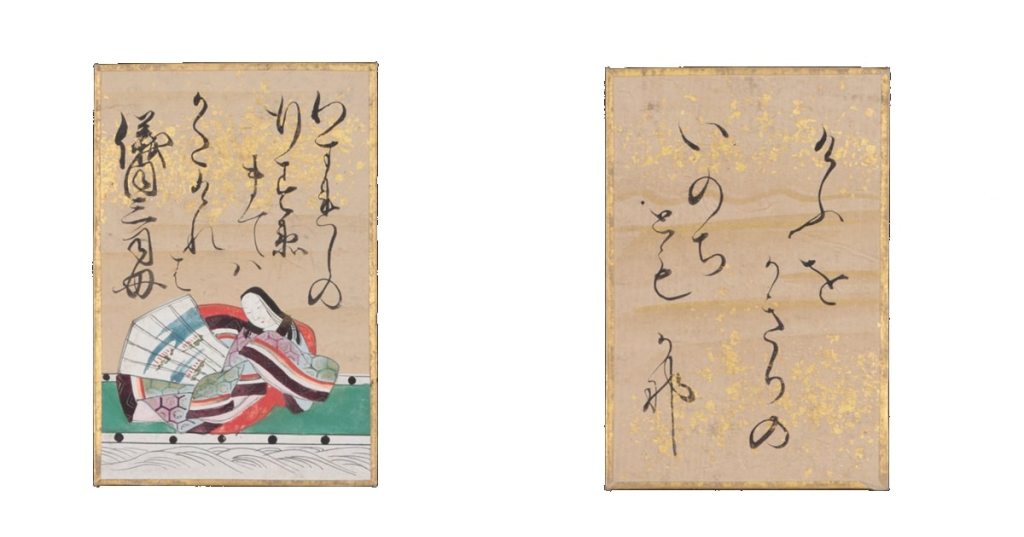 わすれしの
行すゑ
まては
かたけれは
儀同三司母
けふを
かきりの
いのち
とも
かな